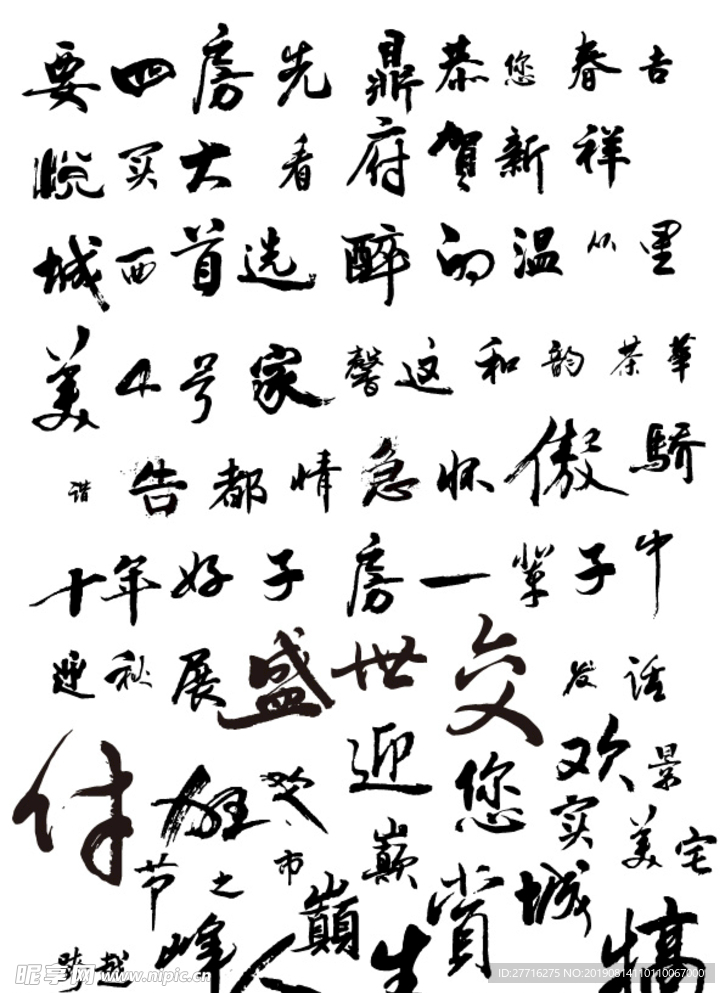 要四房先鼎恭您春吉
悦买大看府贺新祥
城西首选醉的温从里
美4号家馨这和韵茶華
谐告都情急怀傲骄
十年好子房一辈子中
迎秋展盛世交发话
付狂欢迎您欢景
实美宅
节之市巅
巅赏城
跨越峰人生犒
昵享网 www.nipic.cn
ID:27716275 NO:20190814110110067000